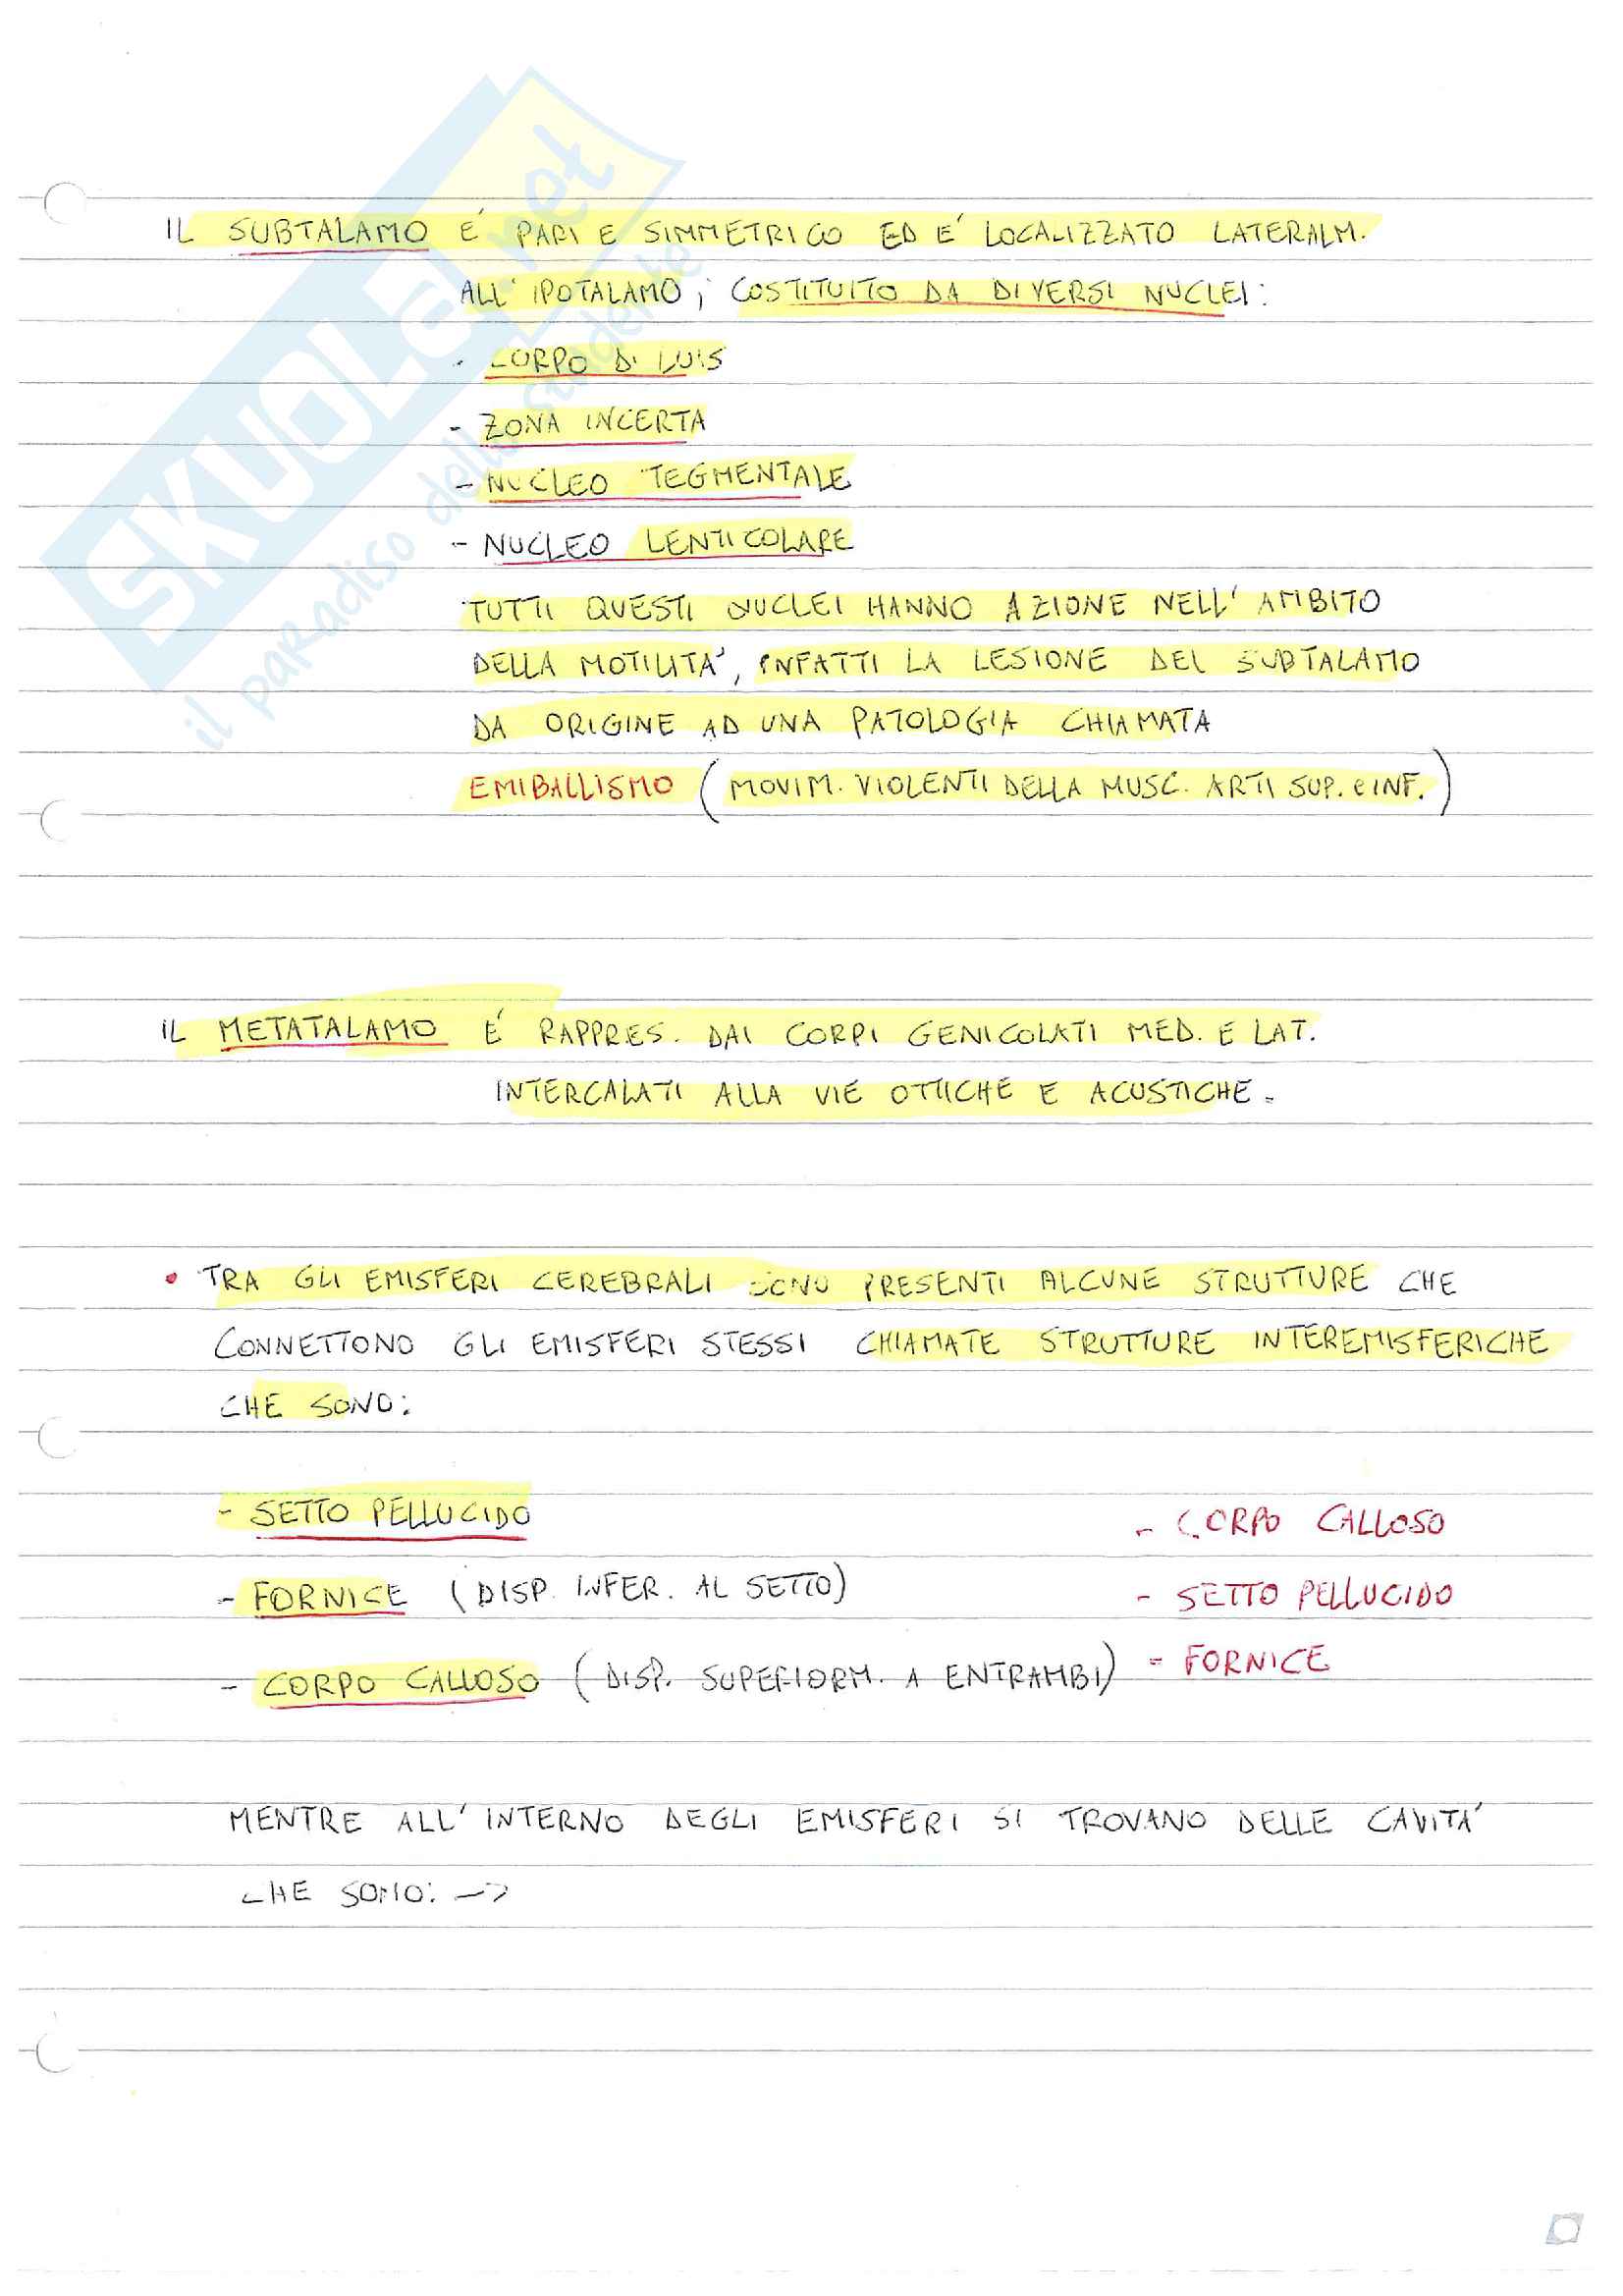 IL SUBTALAMO E' PARI E SIMMETRICO ED E' LOCALIZZATO LATERALM.
ALL' IPOTALAMO, COSTITUITO DA DIVERSI NUCLEI:
- CORPO DI LUIS
- ZONA INCERTA
- NUCLEO TEGMENTALE
- NUCLEO LENTICOLARE
TUTTI QUESTI NUCLEI HANNO AZIONE NELL' AMBITO
DELLA MOTILITA', INFATTI LA LESIONE DEL SUBTALAMO
DA ORIGINE AD UNA PATOLOGIA CHIAMATA
EMIBALLISMO (MOVIM. VIOLENTI DELLA MUSC. ARTI SUP. e INF.)
IL METATALAMO E' RAPPRES. DAI CORPI GENICOLATI MED. E LAT.
INTERCALATI ALLA VIE OTTICHE E ACUSTICHE.
• TRA GLI EMISFERI CEREBRALI SONO PRESENTI ALCUNE STRUTTURE CHE
CONNETTONO GLI EMISFERI STESSI CHIAMATE STRUTTURE INTEREMISFERICHE
CHE SONO:
- SETTO PELLUCIDO
- FORNICE (DISP. INFER. AL SETTO)
- CORPO CALLOSO (DISP. SUPERIORM. A ENTRAMBI)
- CORPO CALLOSO
- SETTO PELLUCIDO
- FORNICE
MENTRE ALL' INTERNO DEGLI EMISFERI SI TROVANO DELLE CAVITA'
CHE SONO: ->
SKUOLA.net
il paradiso dello studente